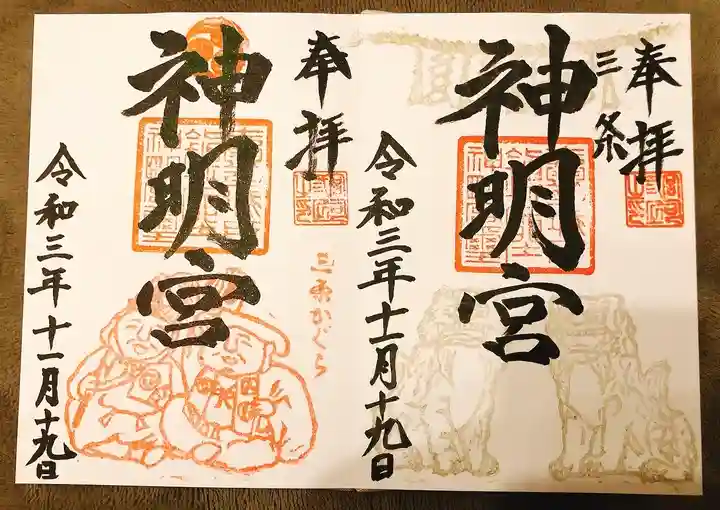 奉拝
三条
神明宮
令和三年十一月十九日
奉拝
神明宮
三条かぐら
令和三年十一月十九日